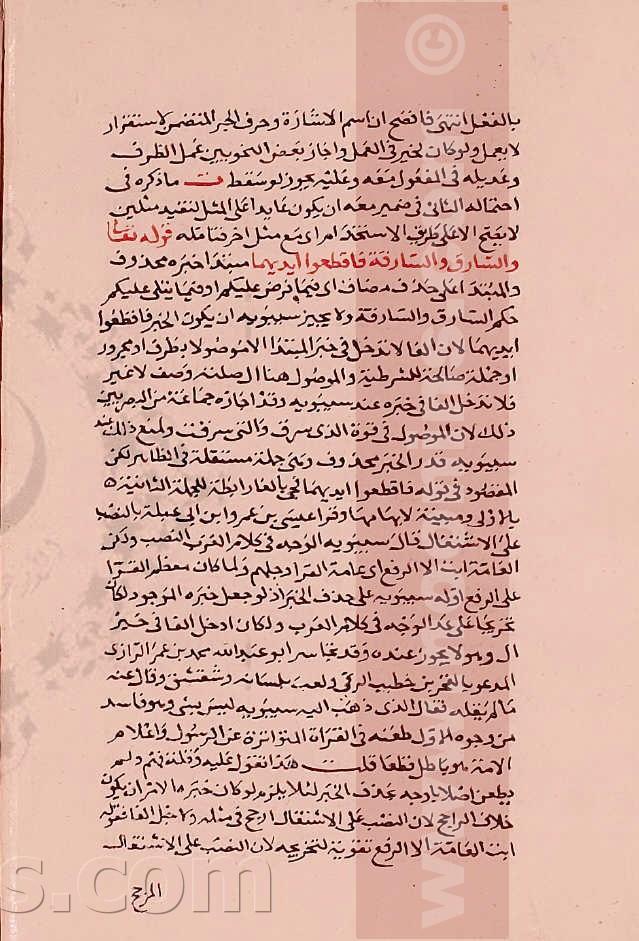 بالفعل انتهى فافصح ان اسم الاشارة وحرف الجر المتضمن لاستقرار
لا يعمل ولو كان لخبر في العمل واجاز بعض النحويين عمل الظرف
وعديله في المفعول معه وعليه يجوز لو سقطت ما ذكره في
احتماله الثاني في ضمير معه ان يكون عايدا على المثل لتقيد مثلين
لا بفتح الاعلى طرف الاستخدام اي مع مثل اخر فتامله قوله تعالى
والسارق والسارقة فاقطعوا ايديهما مبتدا خبره محذوف
والمبتدا على حذف مضاف اي فيما فرض عليكم او فيما يتلى عليكم
حكم السارق والسارقة ولا يجيز سيبويه ان يكون الخبر فاقطعوا
ايديهما لان الفا لا تدخل في خبر المبتدا الا موصولا بظرف او مجرور
او جملة صالحة للشرطية والموصول هنا ال صلته وصف لا غير
فلا تدخل الفا في خبره عند سيبويه وقد اجازه جماعة من البصريين
ذلك لان الموصول في قوة الذي سرق والتي سرقت ولمنع ذلك عند
سيبويه قدر الخبر محذوف وهي جملة مستقلة في الظاهر لكن
المقصود في قوله فاقطعوا ايديهما فجي بالفا رابطة للجملة الثانية
بالاولى ومبينة لابهامها وقرا عيسى بن عمر وابن ابي عبلة بالنصب
على الاشتغال قال سيبويه الوجه في كلام العرب النصب ولكن
العامة ابت الا الرفع اي عامة القرا وجلهم ولما كان معظم القرا
على الرفع اوله سيبويه على حذف الخبر اذ لو جعل خبره الموجود لكان
تخريجا على غير الوجه في كلام العرب ولكان ادخل الفا في خبر
ال وهو لا يجوز عنده وقد تجاسر ابو عبد الله محمد بن عمر الرازي
المدعو بالفخر بن خطيب الري ولعب بلسانه وشقشق وقال عنه
ما لم يقله فقال الذي ذهب اليه سيبويه ليس بشي وهو فاسد
من وجوه الاول طعنه في القراة المتواترة عن الرسول واعلام
الامة وهو باطل قطعا قلت هذا القول عليه وقلة فهم ولم
يطعن اصلا بل وجه بحذف الخبر لئلا يلزم لو كان خبره الامر ان يكون
خلاف الراجح لان النصب على الاشتغال ارجح في مثله ولاجل الفا فقوله
ابت العامة الا الرفع تقوية لتخريجه لان النصب على الاشتغال
المرجح